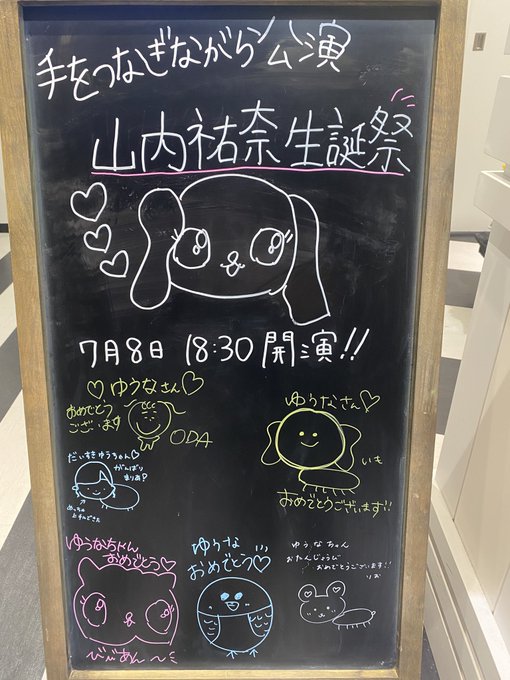 手をつなぎながら公演
山内祐奈生誕祭
7月8日 18:30 開演!!
ゆうなさん
おめでとう
ございます
ODA
ゆうなさん
いも
おめでとうございます!!
だいすきゆうちゃん
がんばり
まりあP
めっちゃ
上手んできた
ゆうなちゃん
おめでとう
びびあん
ゆうな
おめでとう!!!
ゆうなちゃん
おたんじょうび
おめでとうございます!!
りお